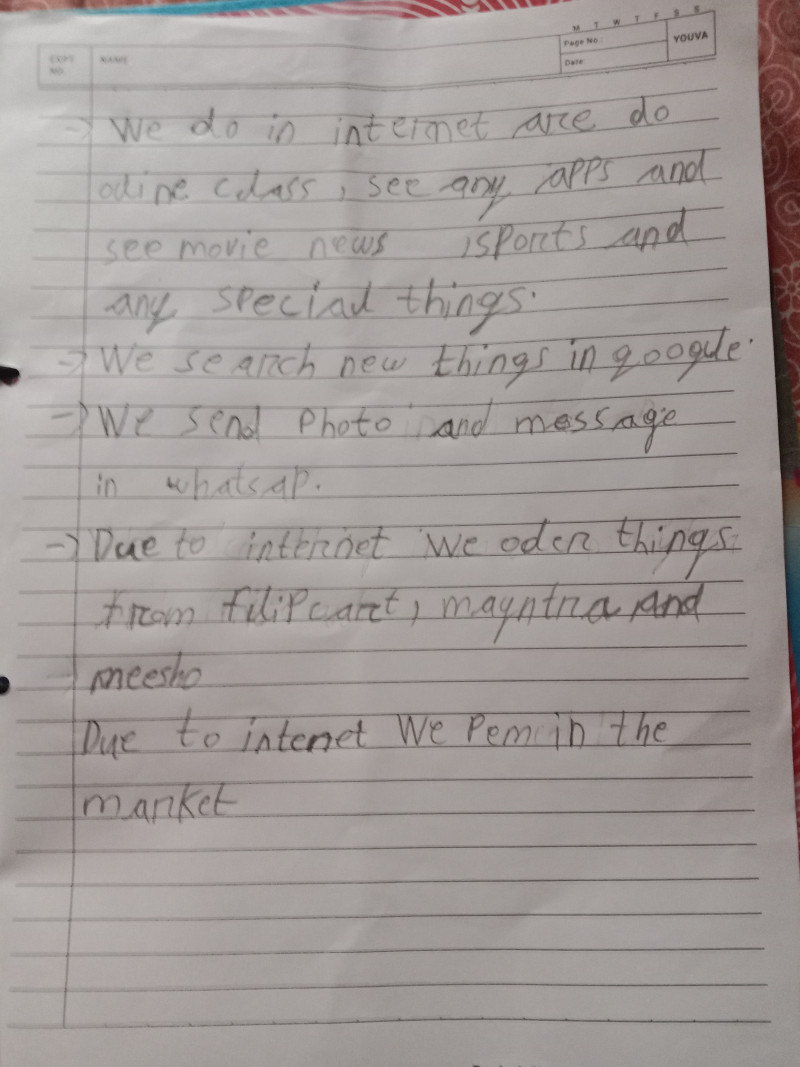 M T W T F S S
EXPT NO. NAME Page No. YOUVA
Date:
→ We do in internet are do
oline class, see any apps and
see movie news , sports and
any special things.
→ We search new things in google.
→ We send Photo and message
in whatsap.
→ Due to internet We oder things
from filipcart, mayntra and
meesho
Due to intenet We Pem in the
market